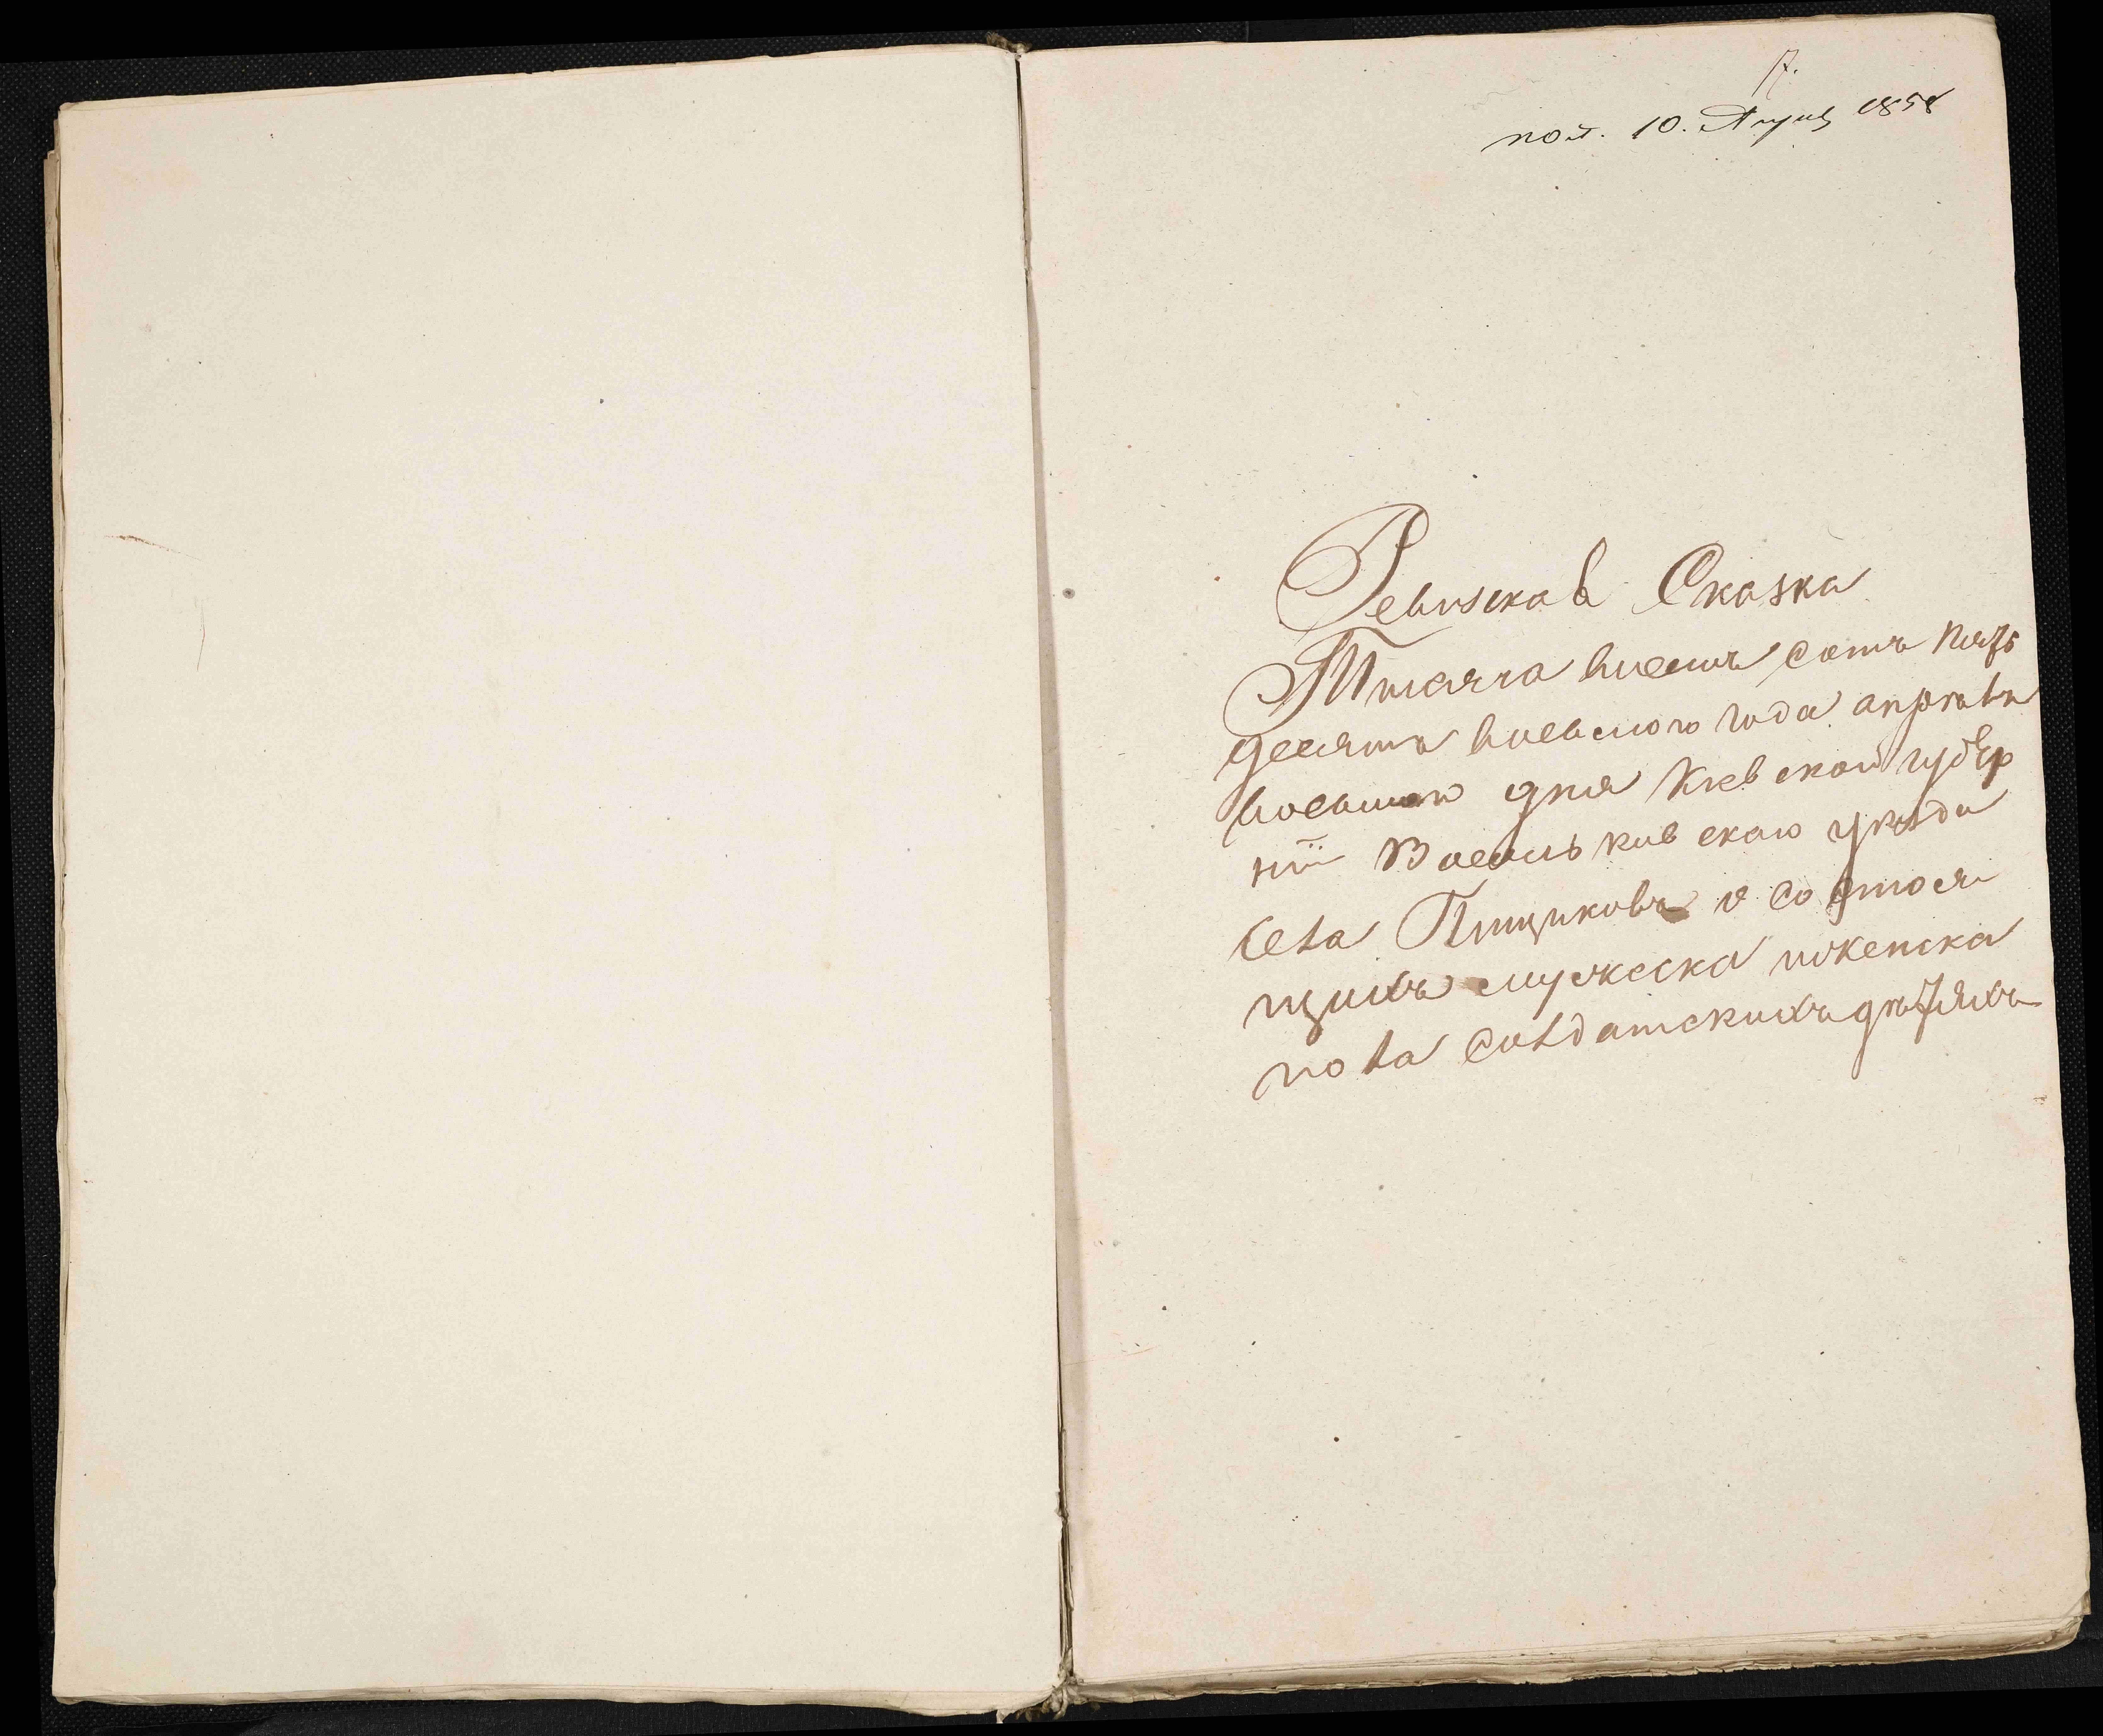 7.
пол. 10. Апреля 1858
Ревизская Сказка
Тысяча восемь сотъ пять
десятъ восьмого года апреля
восьмого дня Киевской губер
нiи Васильковскаго уезда
села Пищиковъ о состоя
щихъ мужеска иженска
пола солдатскихъ детяхъ